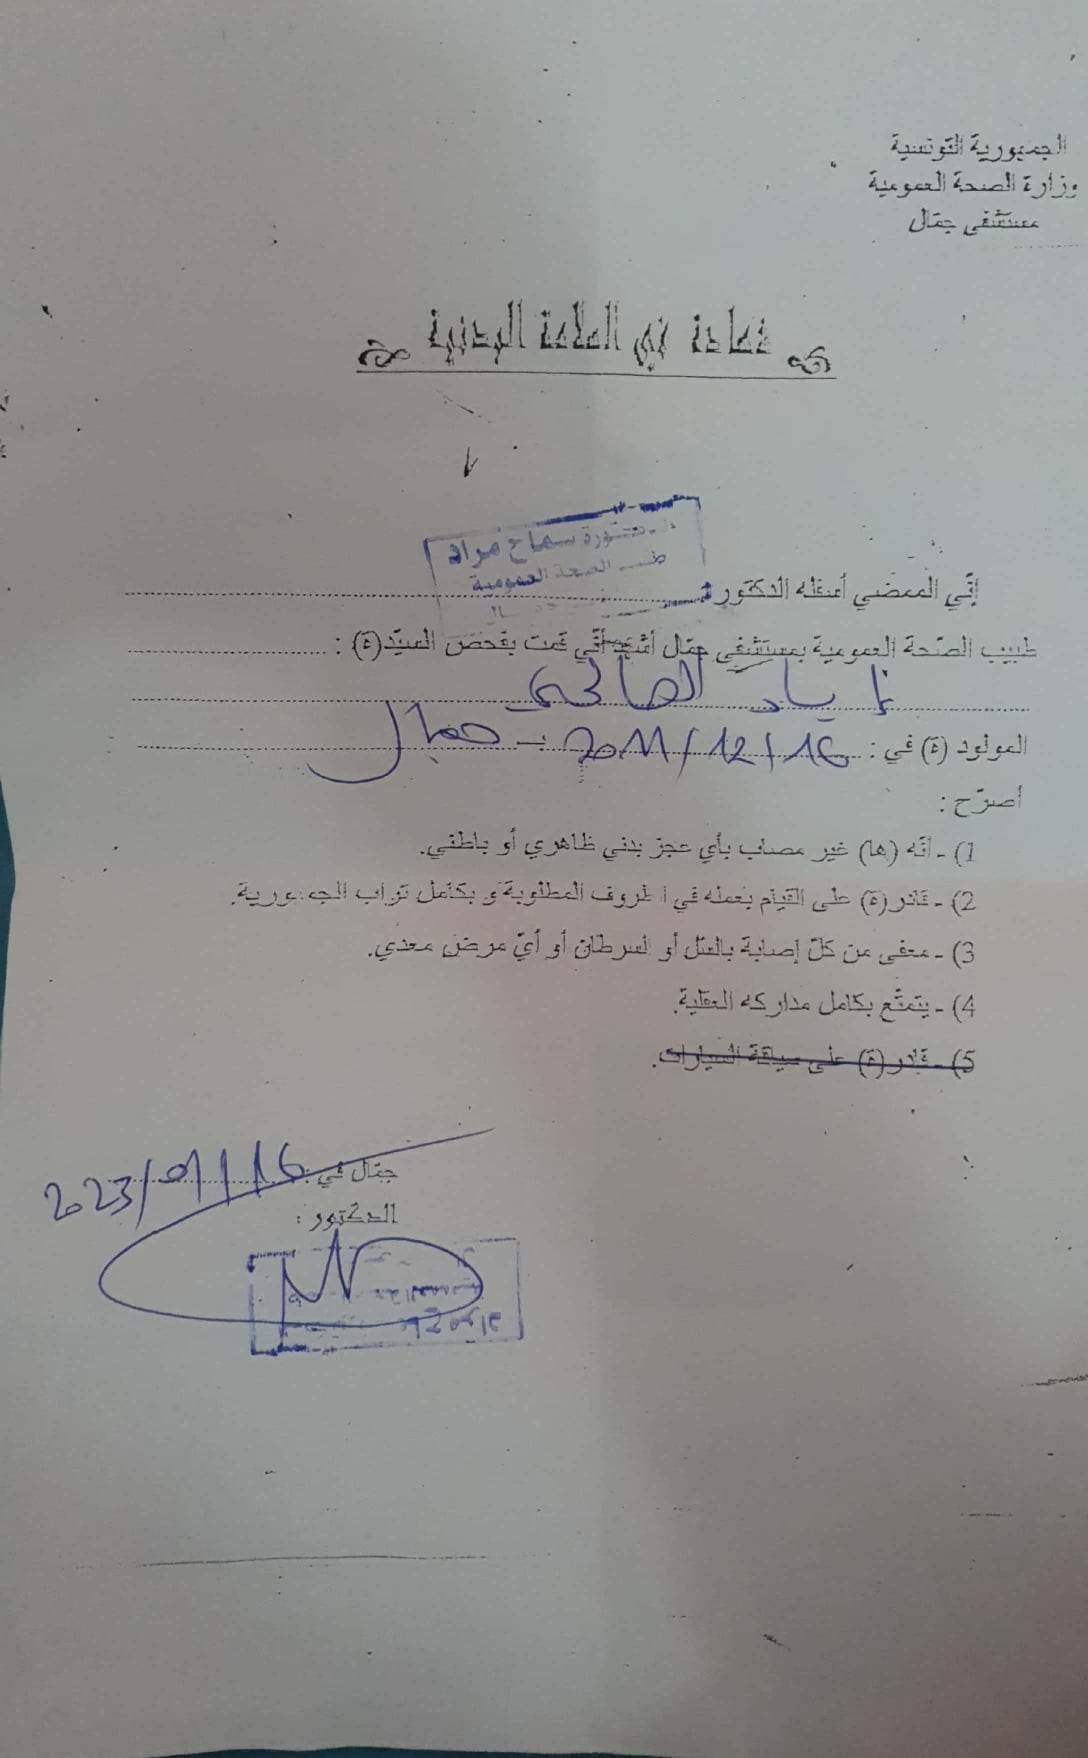 الجمهورية التونسية
وزارة الصحة العمومية
مستشفى جمّال
شهادة في السلامة البدنية
سماح مراد
الصحة العمومية
إنّي الممضي أسفله الدكتور
طبيب الصّحة العمومية بمستشفى جمّال أشهد أنّي قمت بفحص السيّد(ة) :
إياد الصالحي
المولود (ة) في : 2011/12/16 - جمال
أصرّح :
1) - أنّه (ها) غير مصاب بأي عجز بدني ظاهري أو باطني.
2) - قادر (ة) على القيام بعمله في الظروف المطلوبة و بكامل تراب الجمهورية.
3) - معفى من كلّ إصابة بالسّل أو السرطان أو أيّ مرض معدي.
4) - يتمتّع بكامل مداركه العقلية.
5) - قادر (ة) على سياقة السيارات.
جمّال في : 2023/01/16
الدكتور :